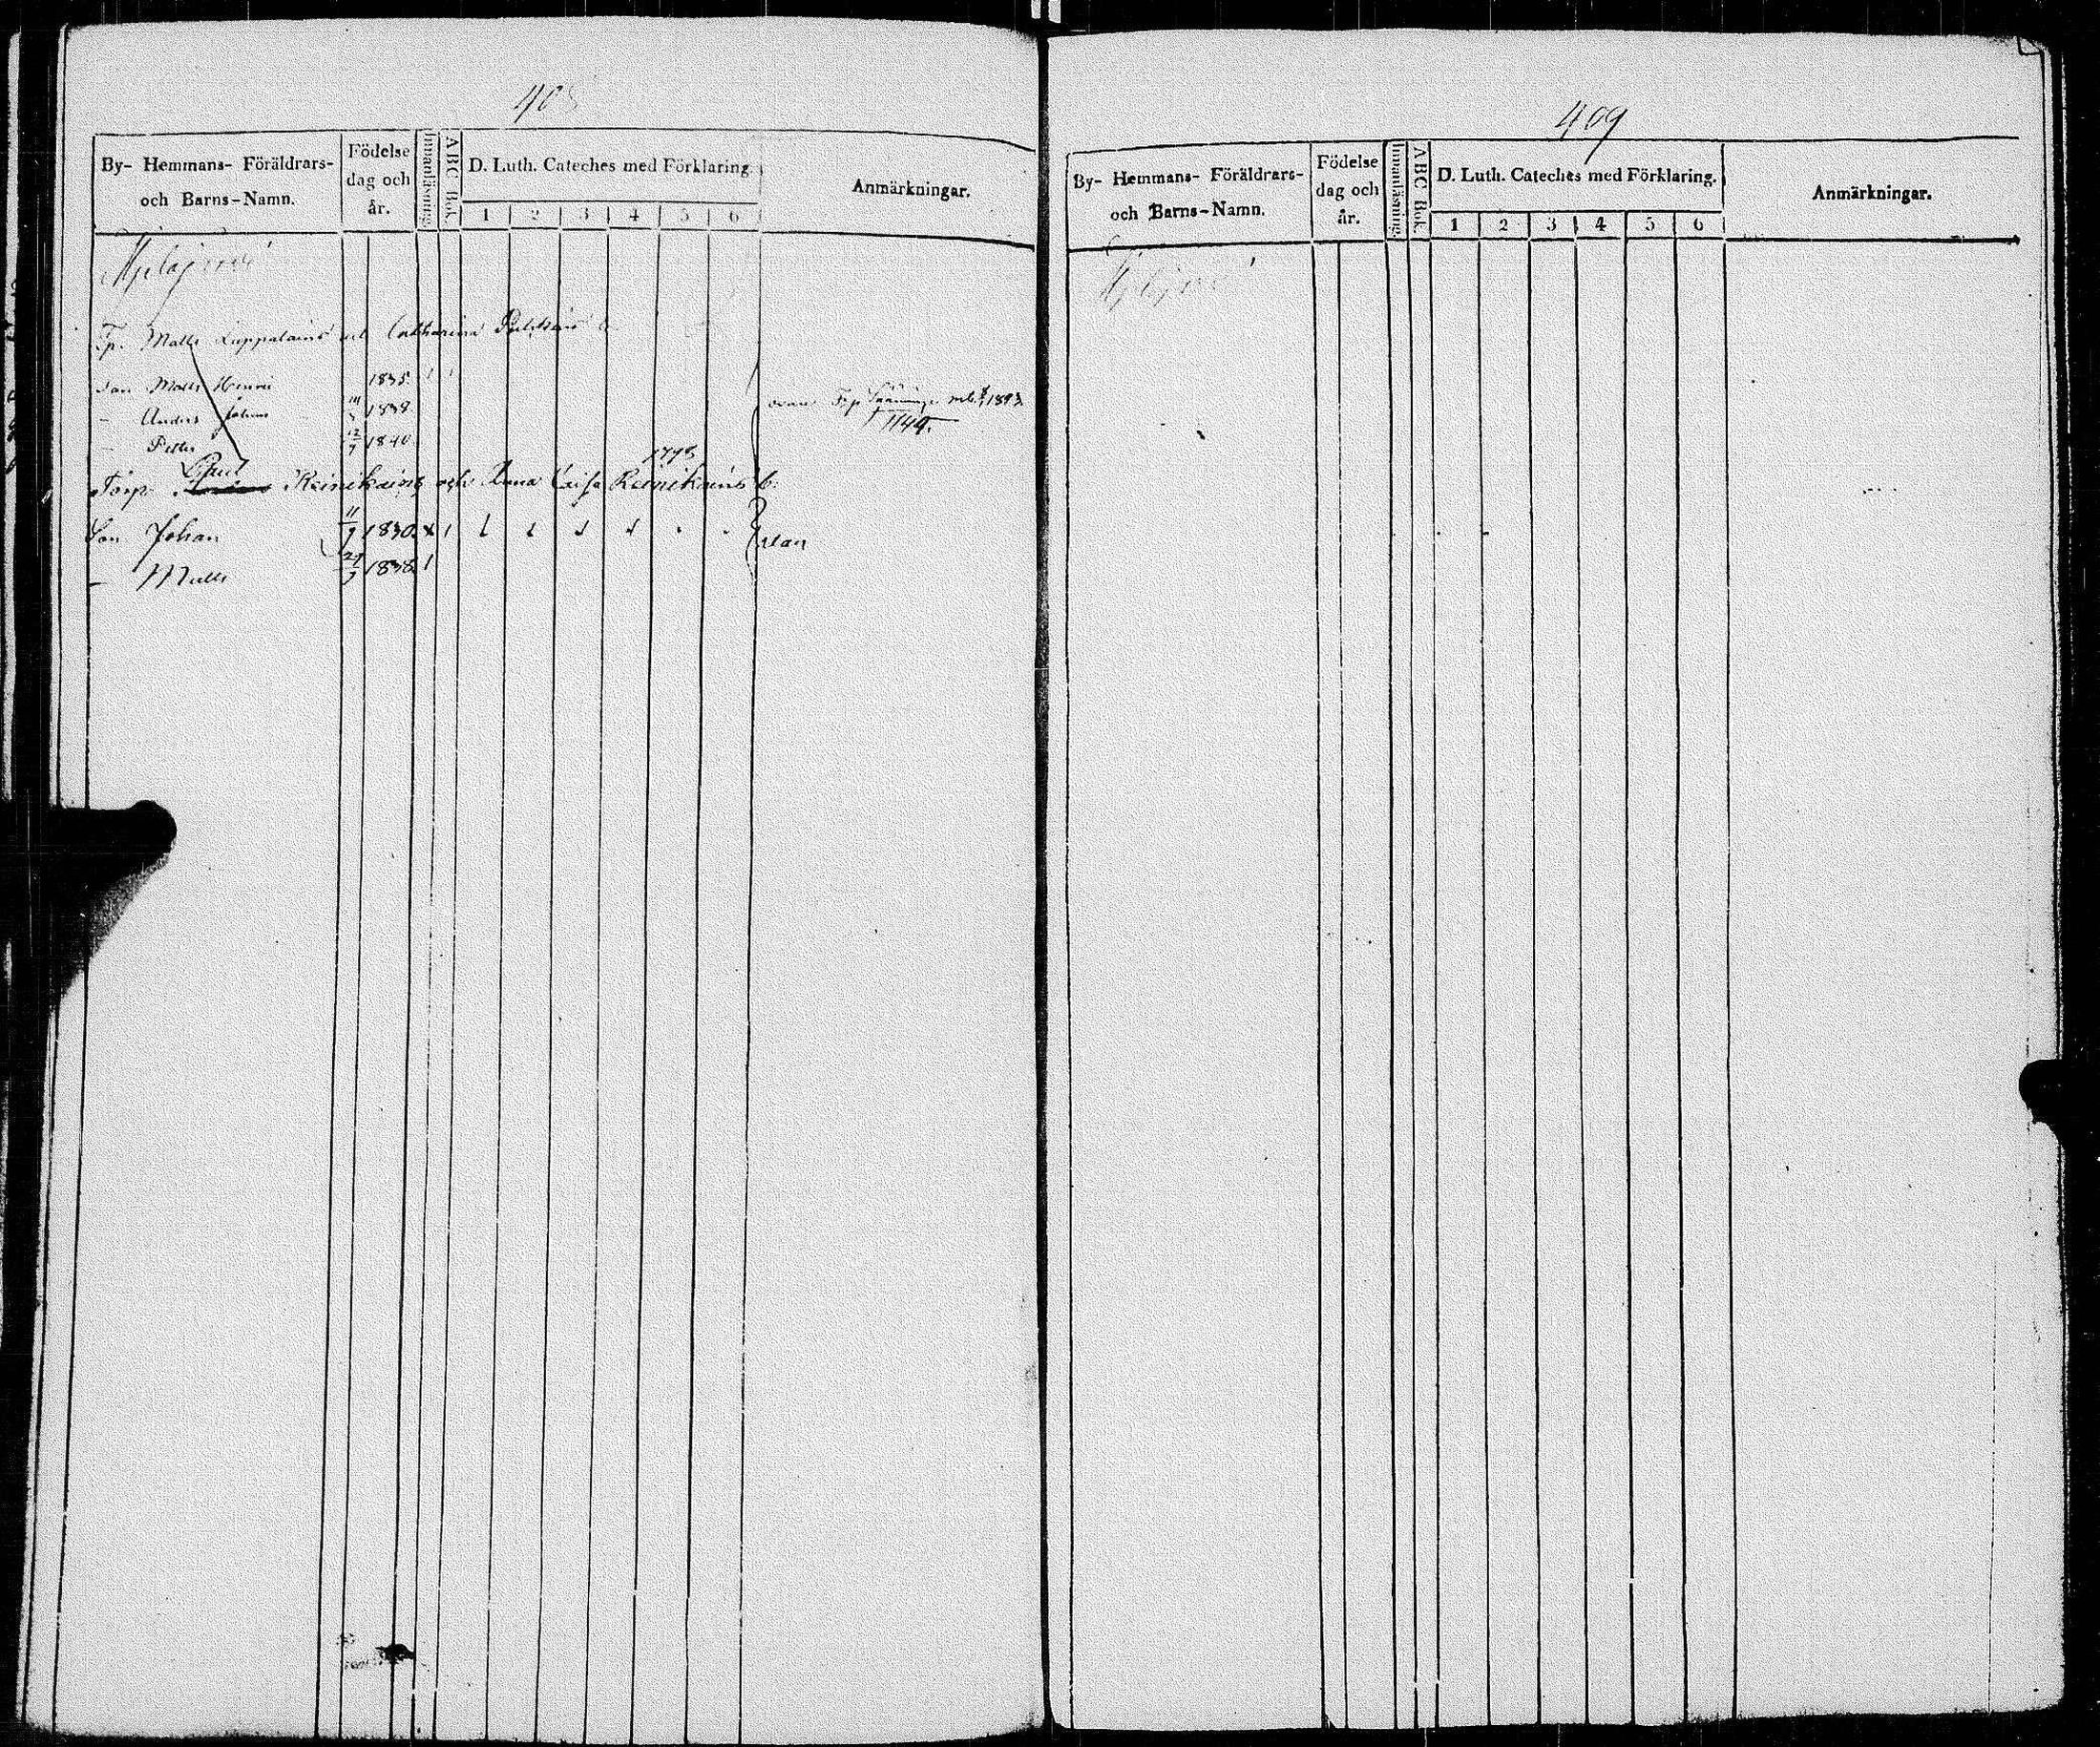 408
By- Hemmans- Föräldrars- och Barns-Namn.
Födelse dag och år.
Innanläsning.
ABC Bok.
D. Luth. Cateches med Förklaring.
1 2 3 4 5 6
Anmärkningar.
Tp. Matts Luppalains och Catharina
Son Matts Henric 1835
- Anders Johan 1838
- Petter 12/9 1840
1149.
1773
Paul
Torp. Reinikains och Anna Caisa Reinikains b.
Son Johan 11/9 1830
- Matts 24/3 1838
utan
409
By- Hemmans- Föräldrars- och Barns-Namn.
Födelse dag och år.
Innanläsning.
ABC Bok.
D. Luth. Cateches med Förklaring.
1 2 3 4 5 6
Anmärkningar.